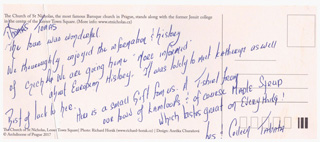 The Church of St Nicholas, the most famous Baroque church in Prague, stands along with the former Jesuit college
in the centre of the Lesser Town Square. (More info: www.stnicholas.cz)
The tour was wonderful
We thoroughly enjoyed the information & history
of Czech. We are going home "more informed"
about European History. It was lovely to met Katherine as well
Best of luck to her. This is a small gift from us. A T shirt from
our host of & of course Maple Syrup
Which tastes great on Everything!
The Church of St Nicholas, Lesser Town Square | Photo: Richard Horák (www.richard-horak.cz) | Design: Annika Churalová
© Archdiocese of Prague 2017